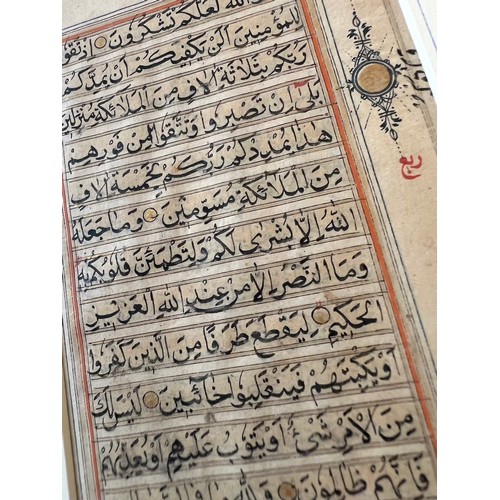 الله لعلكم تشكرون إذ تقو
للمؤمنين ألن يكفيكم أن يمدكم
ربكم بثلاثة آلاف من الملائكة منزلين
بلى إن تصبروا وتتقوا من فورهم
هذا يمددكم ربكم بخمسة آلاف
من الملائكة مسومين وما جعله
الله إلا بشرى لكم ولتطمئن قلوبكم به
وما النصر إلا من عند الله العزيز
الحكيم ليقطع طرفا من الذين كفروا
أو يكبتهم فينقلبوا خائبين ليس لك
من الأمر شيء أو يتوب عليهم أو يعذبهم
فإنهم ظالمون ولله
ربع